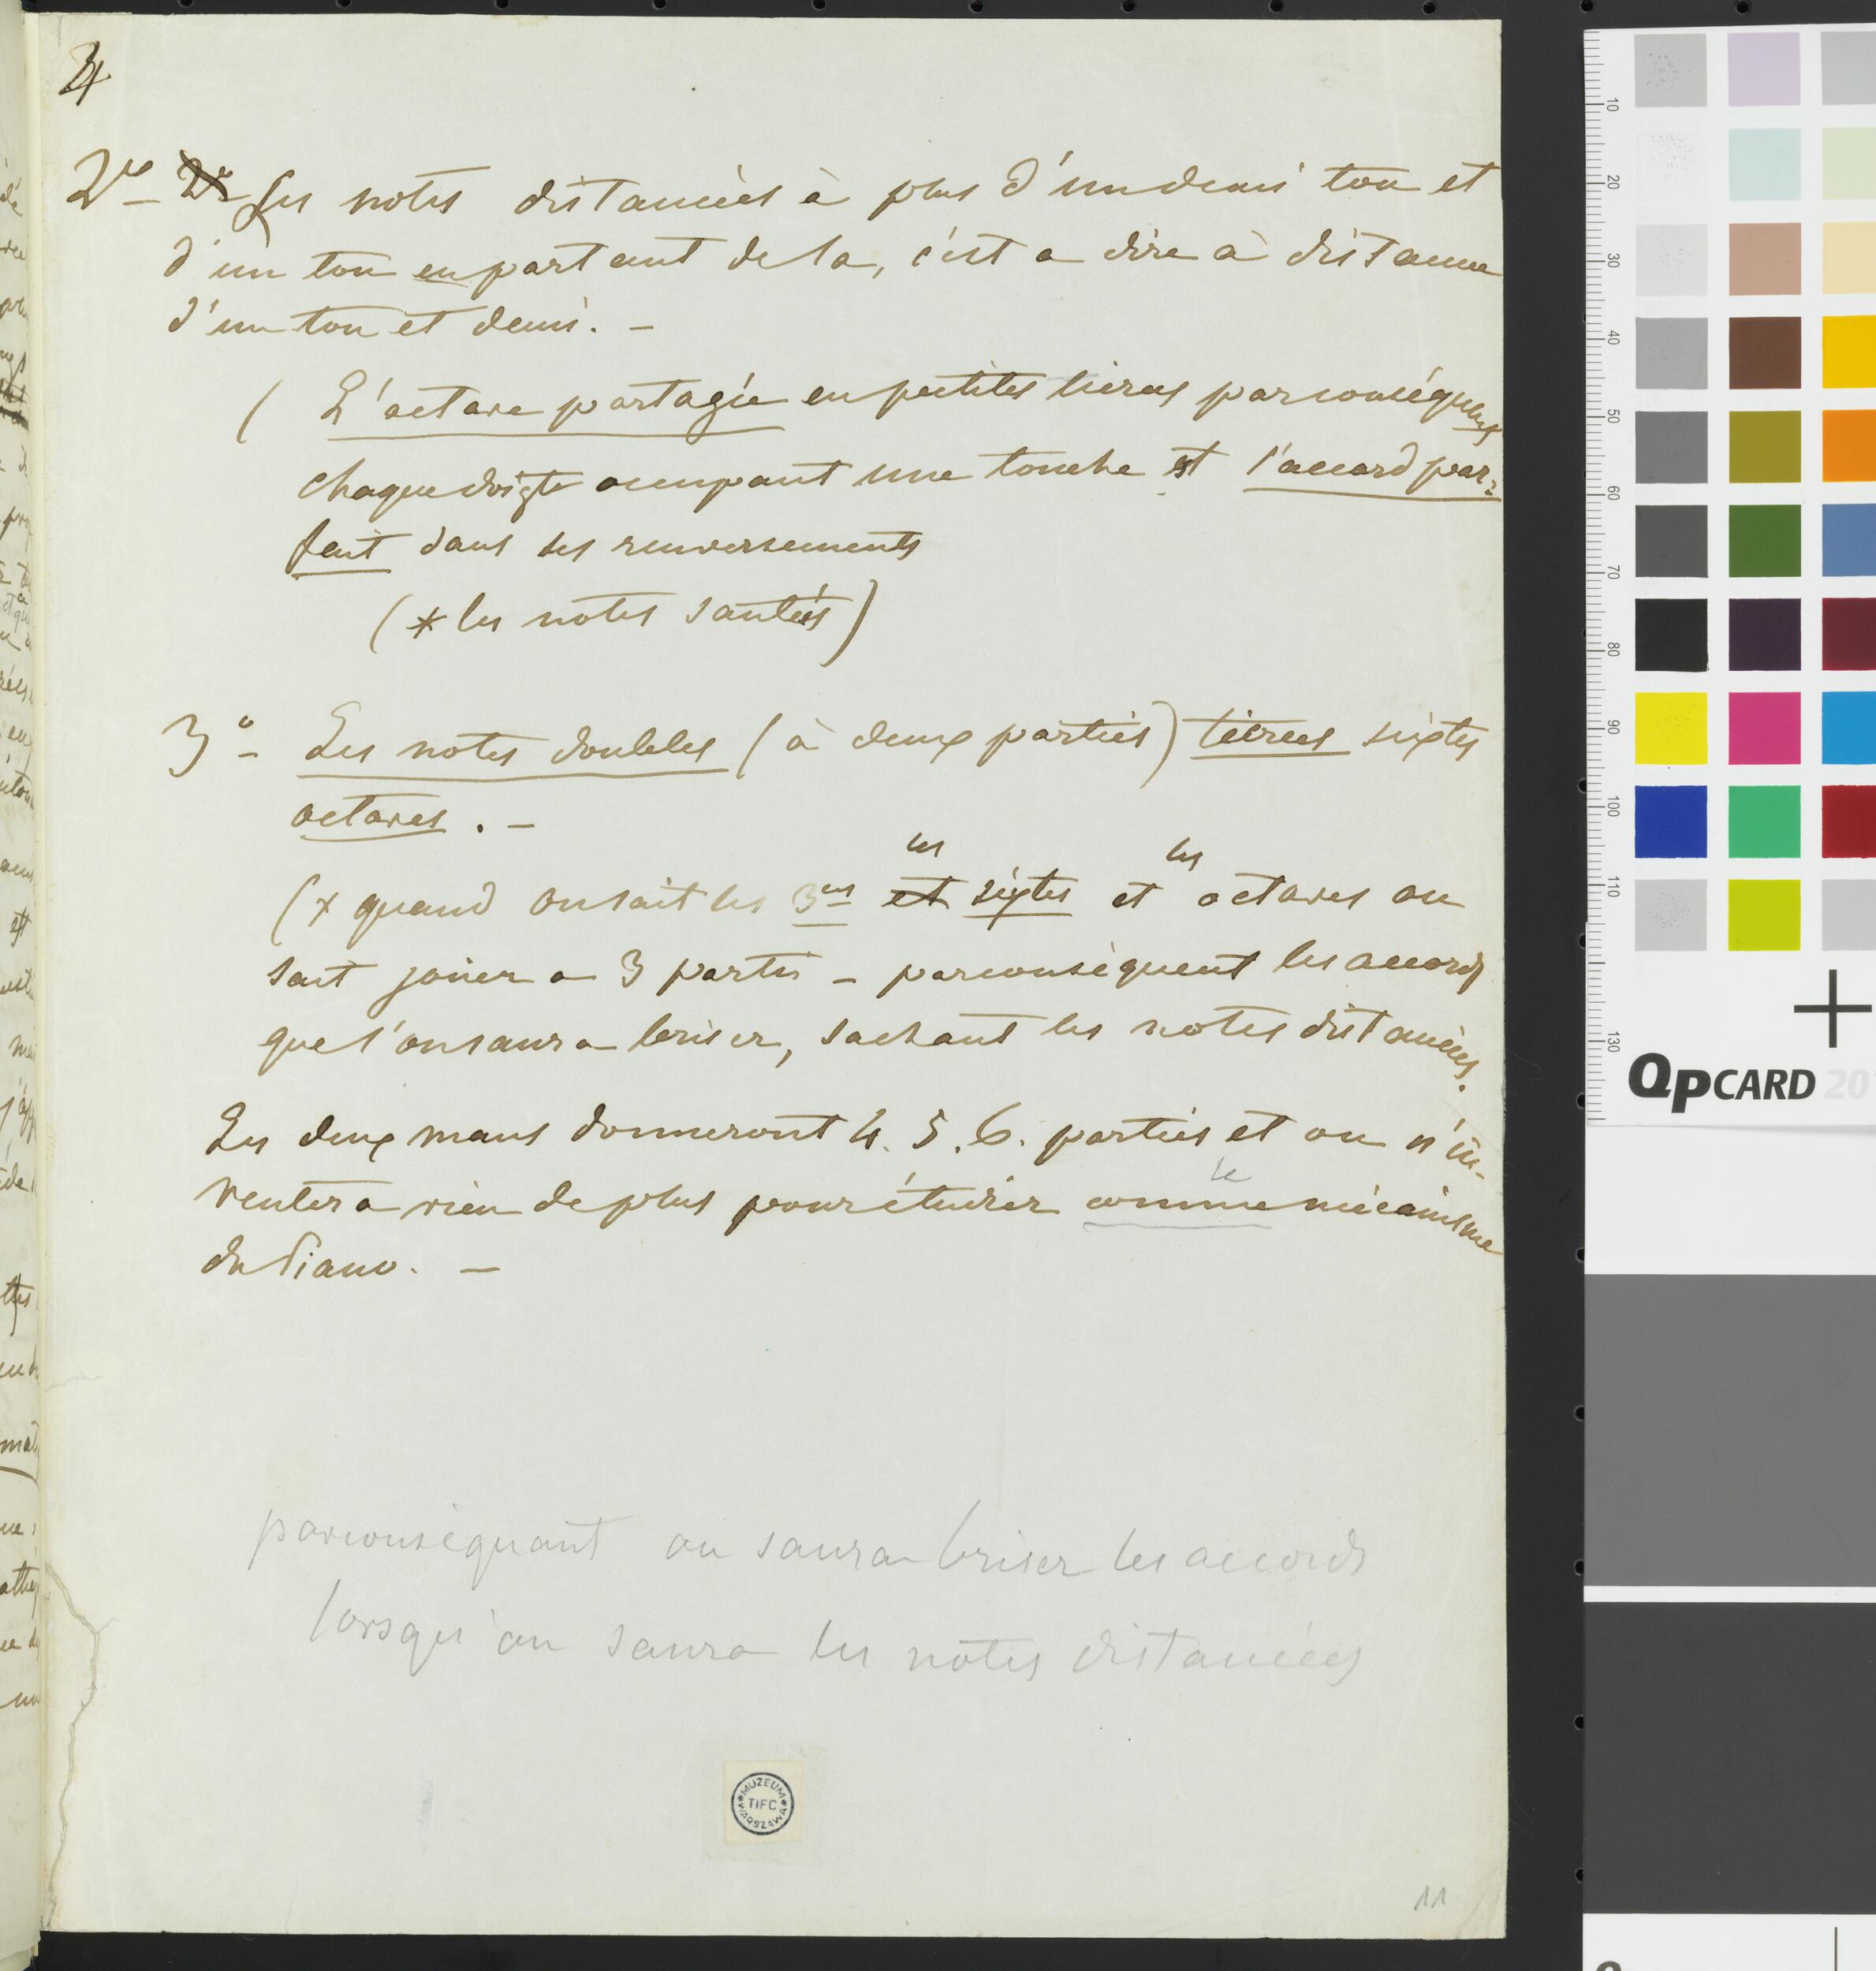 4
2do 2o Les notes distancées à plus d'un demi ton et
d'un ton en partant de la, c'est a dire à distance
d'un ton et demi. –
( L'octave partagée en petites tierces par conséquent
chaque doigte occupant une touche et l'accord par=
fait dans ses renversements
(* les notes sautées)
3o – Les notes doubles (à deux parties) tierces sixtes
octaves. –
les les
(x quand on sait les 3ces et sixtes et octaves on
sait jouer a 3 partis – parconséquent les accords
que l'on saura briser, sachant les notes distancées.
Les deux mans donneront 4. 5. 6. parties et on n'in-
le
ventera rien de plus pour étudier comme mécanisme
du Piano. –
parconséquant on saura briser les accords
lorsqu'on saura les notes distancées
MUZEUM
TIFC
WARSZAWA
11
10
20
30
40
50
60
70
80
90
100
110
130
QPCARD 20